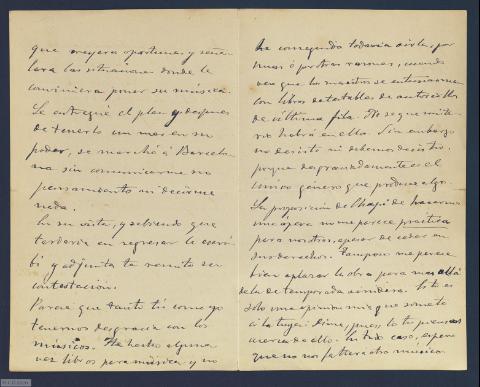 que creyera oportunas y seña-
lara las situaciones donde le
conviniera poner su música.
Le entregué el plan y despues
de tenerlo un mes en su
poder, se marchó á Barcelo-
na sin comunicarme su
pensamiento ni decirme
nada.
En su vista, y sabiendo que
tardaria en regresar le escri-
bí y adjunta te remito su
contestación.
Parece que tanto tú como yo
tenemos desgracia con los
músicos. He hecho alguna
vez libros para música y no
he conseguido todavia oirla, por
unas ó por otras razones, cuando
veo que los maestros se entusiasman
con libros detestables de autorcillos
de última fila. No sé que miste-
rio habrá en ello. Sin embargo
no desisto ni debemos desistir,
porque desgraciadamente es el
unico genero que produce algo.
La proposicion de Chapí de hacernos
una ópera no me parece práctica
para nosotros, apesar de ceder en
sus derechos. Tampoco me parece
bien aplazar la obra para mas allá
de la de temporada venidera. Esto es
solo una opinion mia que someto
á la tuya. Dime, pues, lo que piensas
acerca de ello. En todo caso, espero
que no nos faltará otro músico